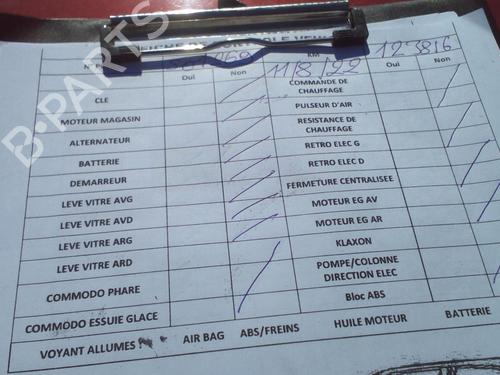 B-PARTS
KM 123816
11/8/22
Oui Non Oui Non
CLE
COMMANDE DE CHAUFFAGE
MOTEUR MAGASIN
PULSEUR D'AIR
ALTERNATEUR
RESISTANCE DE CHAUFFAGE
BATTERIE
RETRO ELEC G
DEMARREUR
RETRO ELEC D
LEVE VITRE AVG
FERMETURE CENTRALISEE
LEVE VITRE AVD
MOTEUR EG AV
LEVE VITRE ARG
MOTEUR EG AR
LEVE VITRE ARD
KLAXON
COMMODO PHARE
POMPE/COLONNE DIRECTION ELEC
COMMODO ESSUIE GLACE
Bloc ABS
VOYANT ALLUMES : AIR BAG ABS/FREINS HUILE MOTEUR BATTERIE